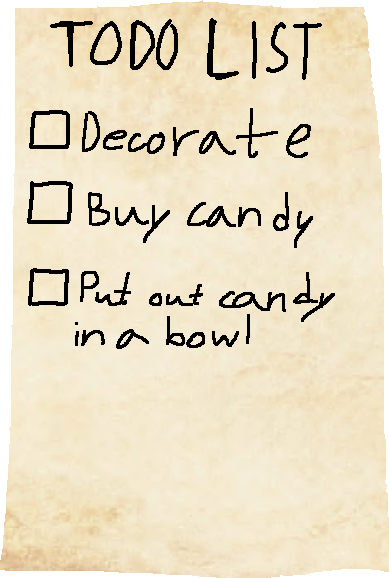 TODO LIST
Decorate
Buy candy
Put out candy
in a bowl